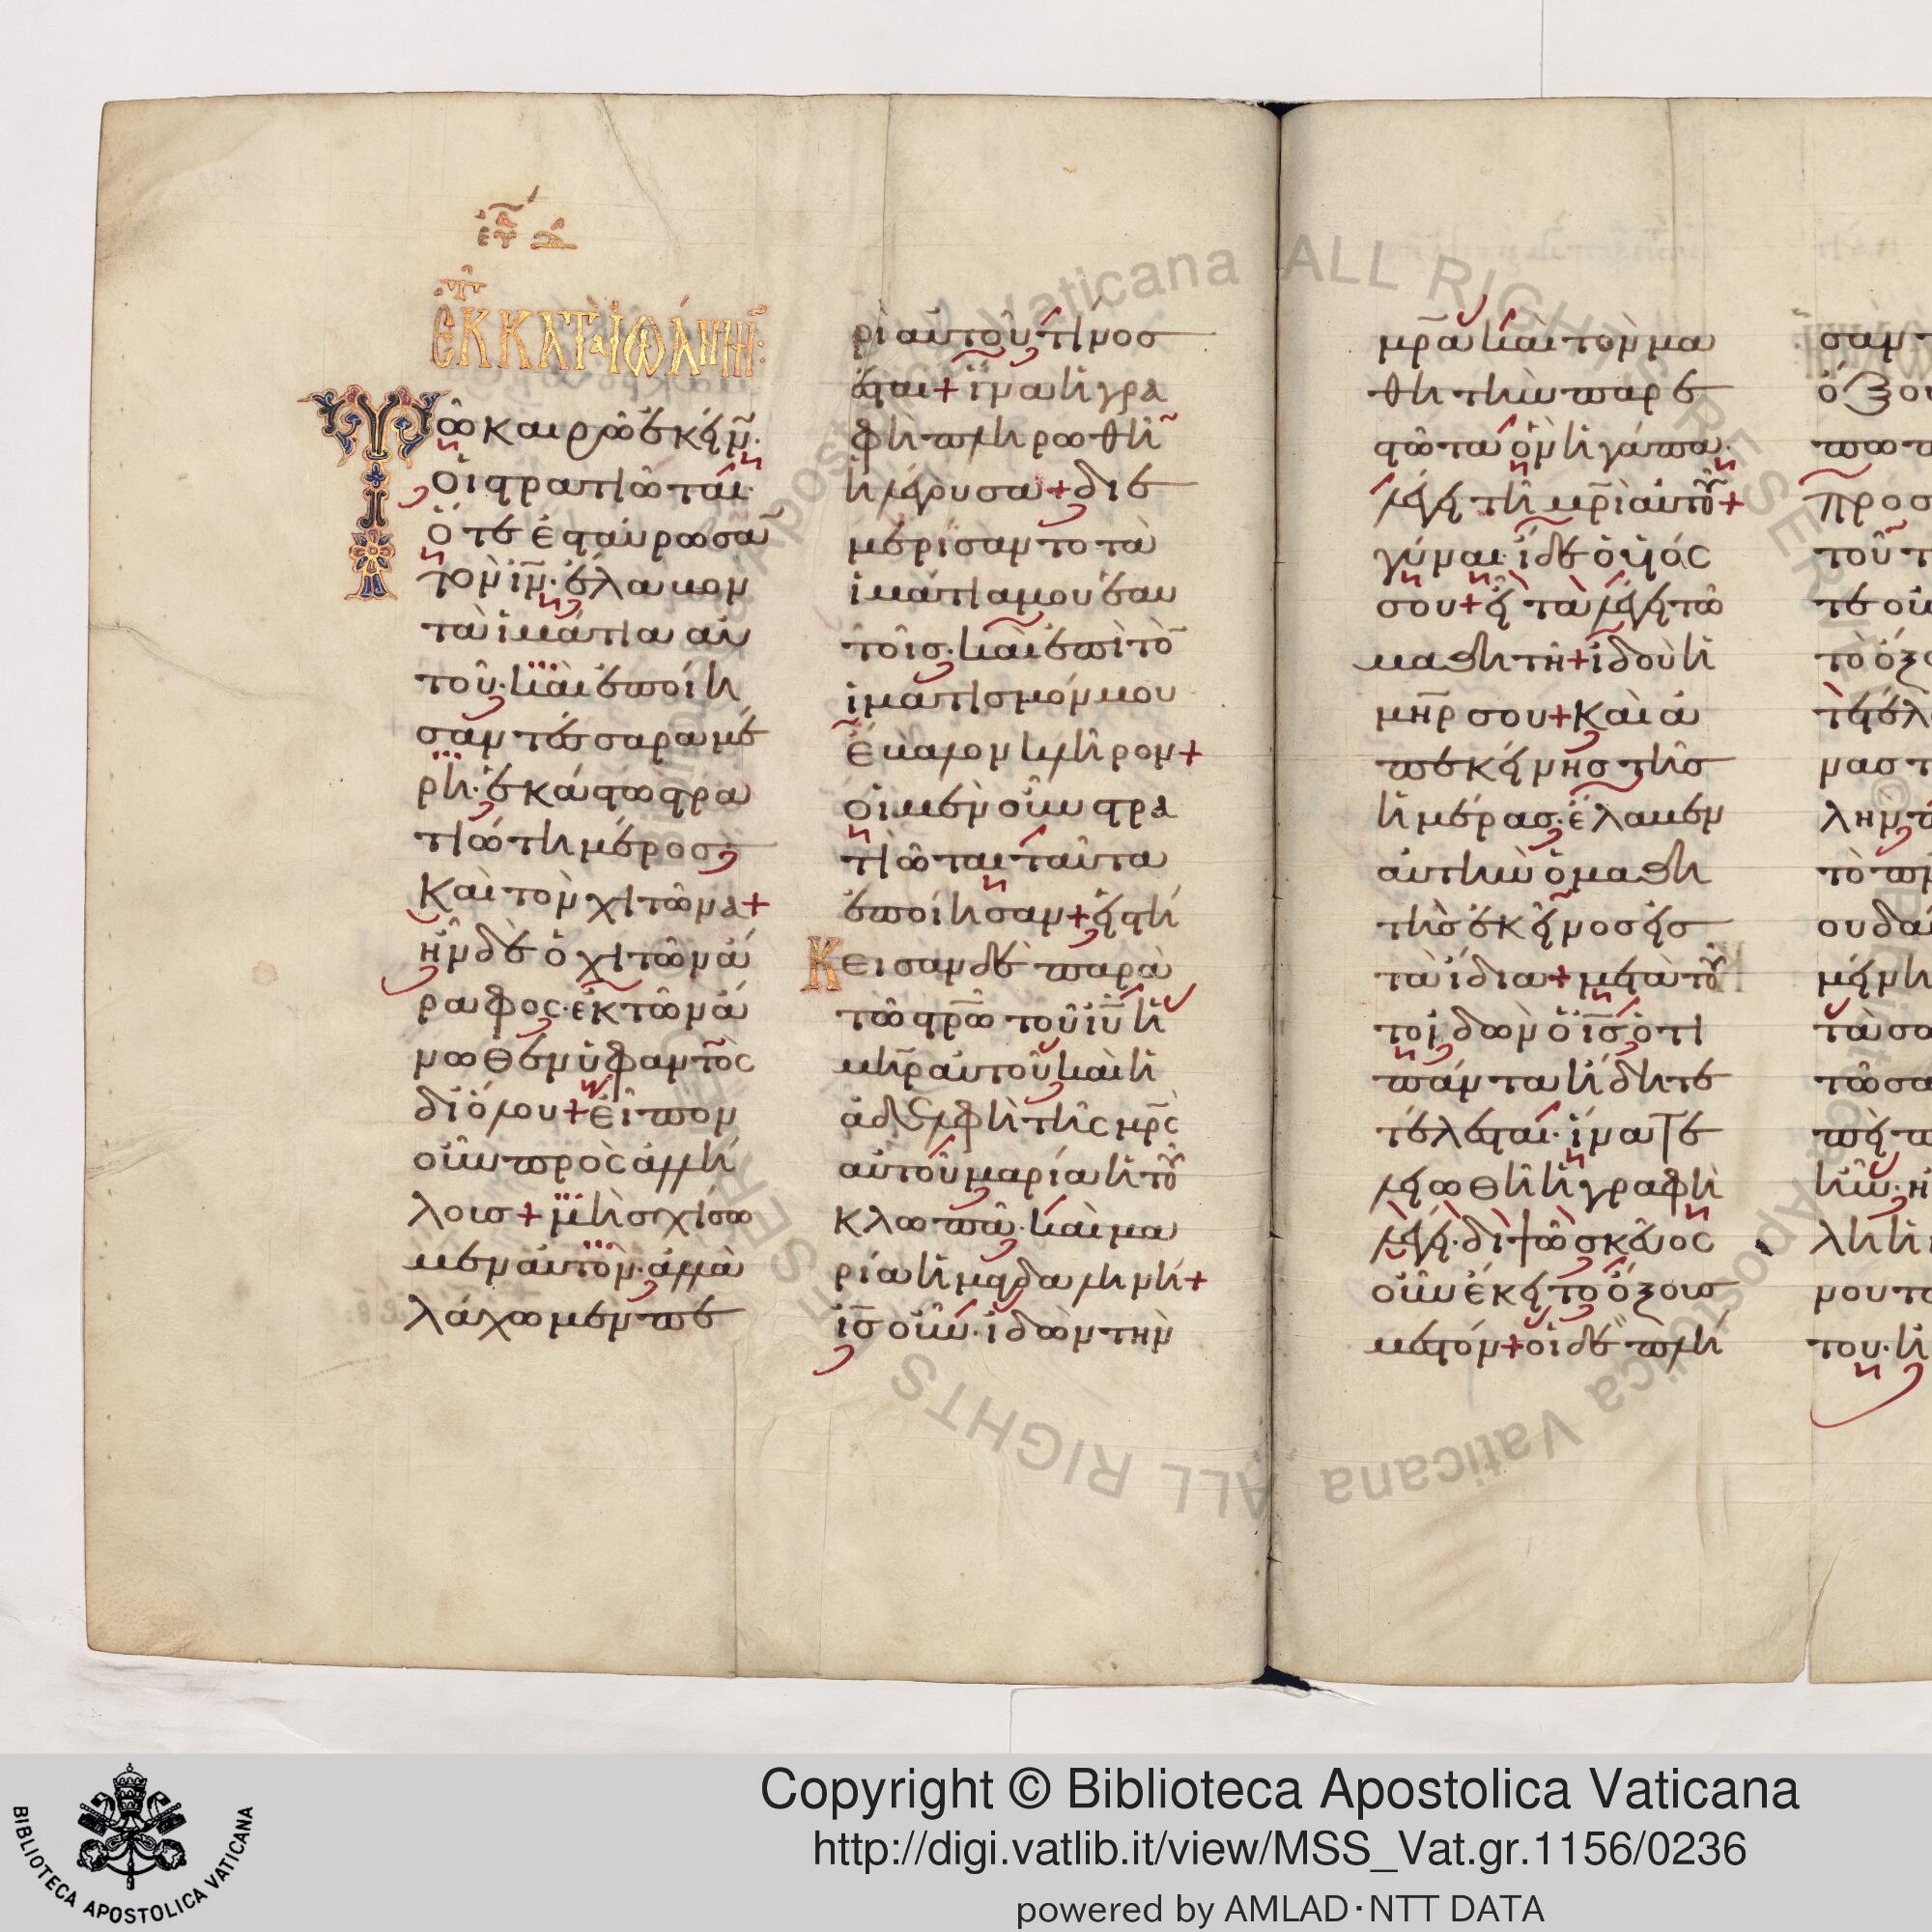 ΕΚ ΚΑΤΑ ΙΩΑΝΝΗΝ:
Τῶ καιρῶ ἐκείν(ω)·
οἱ στρατιῶται·
ὅτε ἐσταύρωσα̅
τὸν ι̅ν̅· ἔλαβον
τὰ ἱμάτια αὐ
τοῦ· καὶ ἐποίη
σαν τέσσαρα μέ
ρη· ἑκάστω στρα
τιώτη μέρος
Καὶ τὸν χιτῶνα+
ἦν δὲ ὁ χιτῶν ἄ
ραφος· ἐκ τῶν ἄ
νωθεν ὑφαντὸς
δι' ὅλου+ εἶπον
οὖν πρὸς ἀλλή
λους+ μὴ σχίσω
μεν αὐτὸν· ἀλλὰ
λάχωμεν πε
ρὶ αὐτοῦ· τίνος
ἔσται+ ἵνα ἡ γρα
φὴ πληρωθῆ
ἡ λέγουσα+ διε
μερίσαντο τὰ
ἱμάτιά μου ἑαυ
τοῖς· καὶ ἐπὶ τὸ̅
ἱματισμόν μου
ἔβαλον κλῆρον+
οἱ μὲν οὖν στρα
τιῶται ταῦτα
ἐποίησαν+ εἱστή
Κεισαν δὲ παρὰ
τῶ στ̅ρ̅ω̅ τοῦ ι̅υ̅ ἡ
μ̅η̅ρ̅ αὐτοῦ καὶ ἡ
ἀδελφὴ τῆς μ̅ρ̅ς̅
αὐτοῦ μαρία ἡ τοῦ
κλωπᾶ· καὶ μα
ρία ἡ μαγδαληνή+
ι̅ς̅ οὖν· ἰδὼν τὴν
μ̅ρ̅α̅ καὶ τὸν μα
θητὴν παρε
στῶτα ὃν ἠγάπα·
λέγει τῆ μ̅ρ̅ι̅ αὐτοῦ+
γύναι· ἴδε ὁ υἱός
σου+ εἶτα λέγει τῶ
μαθητῆ+ ἰδοὺ ἡ
μ̅η̅ρ̅ σου+ Καὶ ἀ
π' ἐκείνης τῆς
ἡμέρας· ἔλαβεν
αὐτὴν ὁ μαθη
τὴς ἐκεῖνος εἰς
τὰ ἴδια+ μετὰ τοῦ
το ἰδὼν ὁ ι̅ς̅ ὅτι
πάντα ἤδη τε
τέλεσται· ἵνα τε
λειωθῆ ἡ γραφὴ
λέγει· διψῶ σκεῦος
οὖν ἔκειτο ὄξους
μεστόν+ οἱ δὲ πλή
σαν
ὄξου
πρόσ
τοῦ
τε οὖ
τὸ ὄξο
Copyright © Biblioteca Apostolica Vaticana
http://digi.vatlib.it/view/MSS_Vat.gr.1156/0236
powered by AMLAD·NTT DATA
BIBLIOTECA APOSTOLICA VATICANA